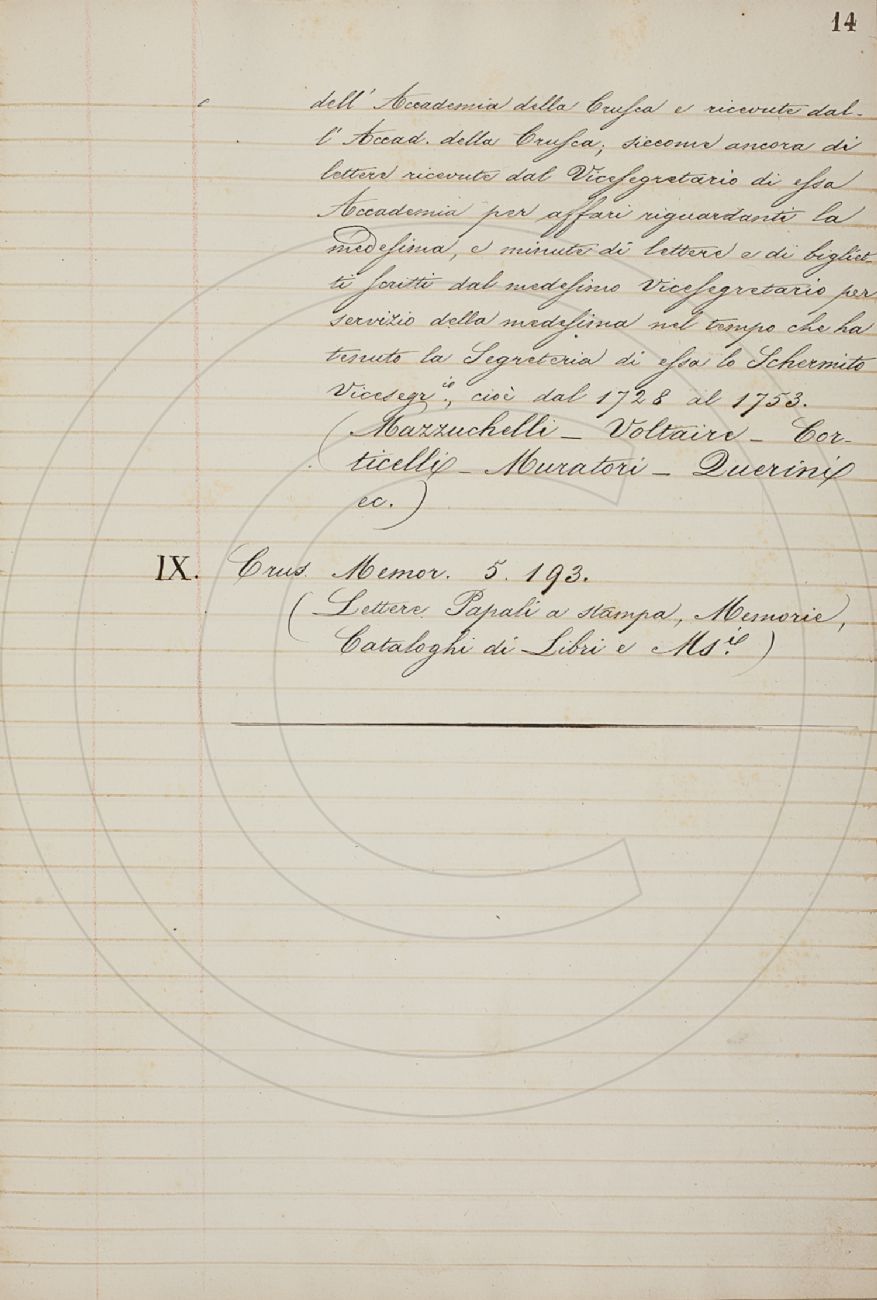 14
dell' Accademia della Crusca e ricevute dal-
l' Accad. della Crusca; siccome ancora di
lettere ricevute dal Vicesegretario di essa
Accademia per affari riguardanti la
medesima, e minute di lettere e di bigliet-
ti scritti dal medesimo Vicesegretario per
servizio della medesima nel tempo che ha
tenuto la Segreteria di essa lo Schermito
Vicesegr.io, cioè dal 1728 al 1753.
(Mazzuchelli - Voltaire - Cor-
ticelli - Muratori - Querini
ec.)
IX. Crus. Memor. 5. 193.
(Lettere Papali a stampa, Memorie,
Cataloghi di Libri e Ms.i)